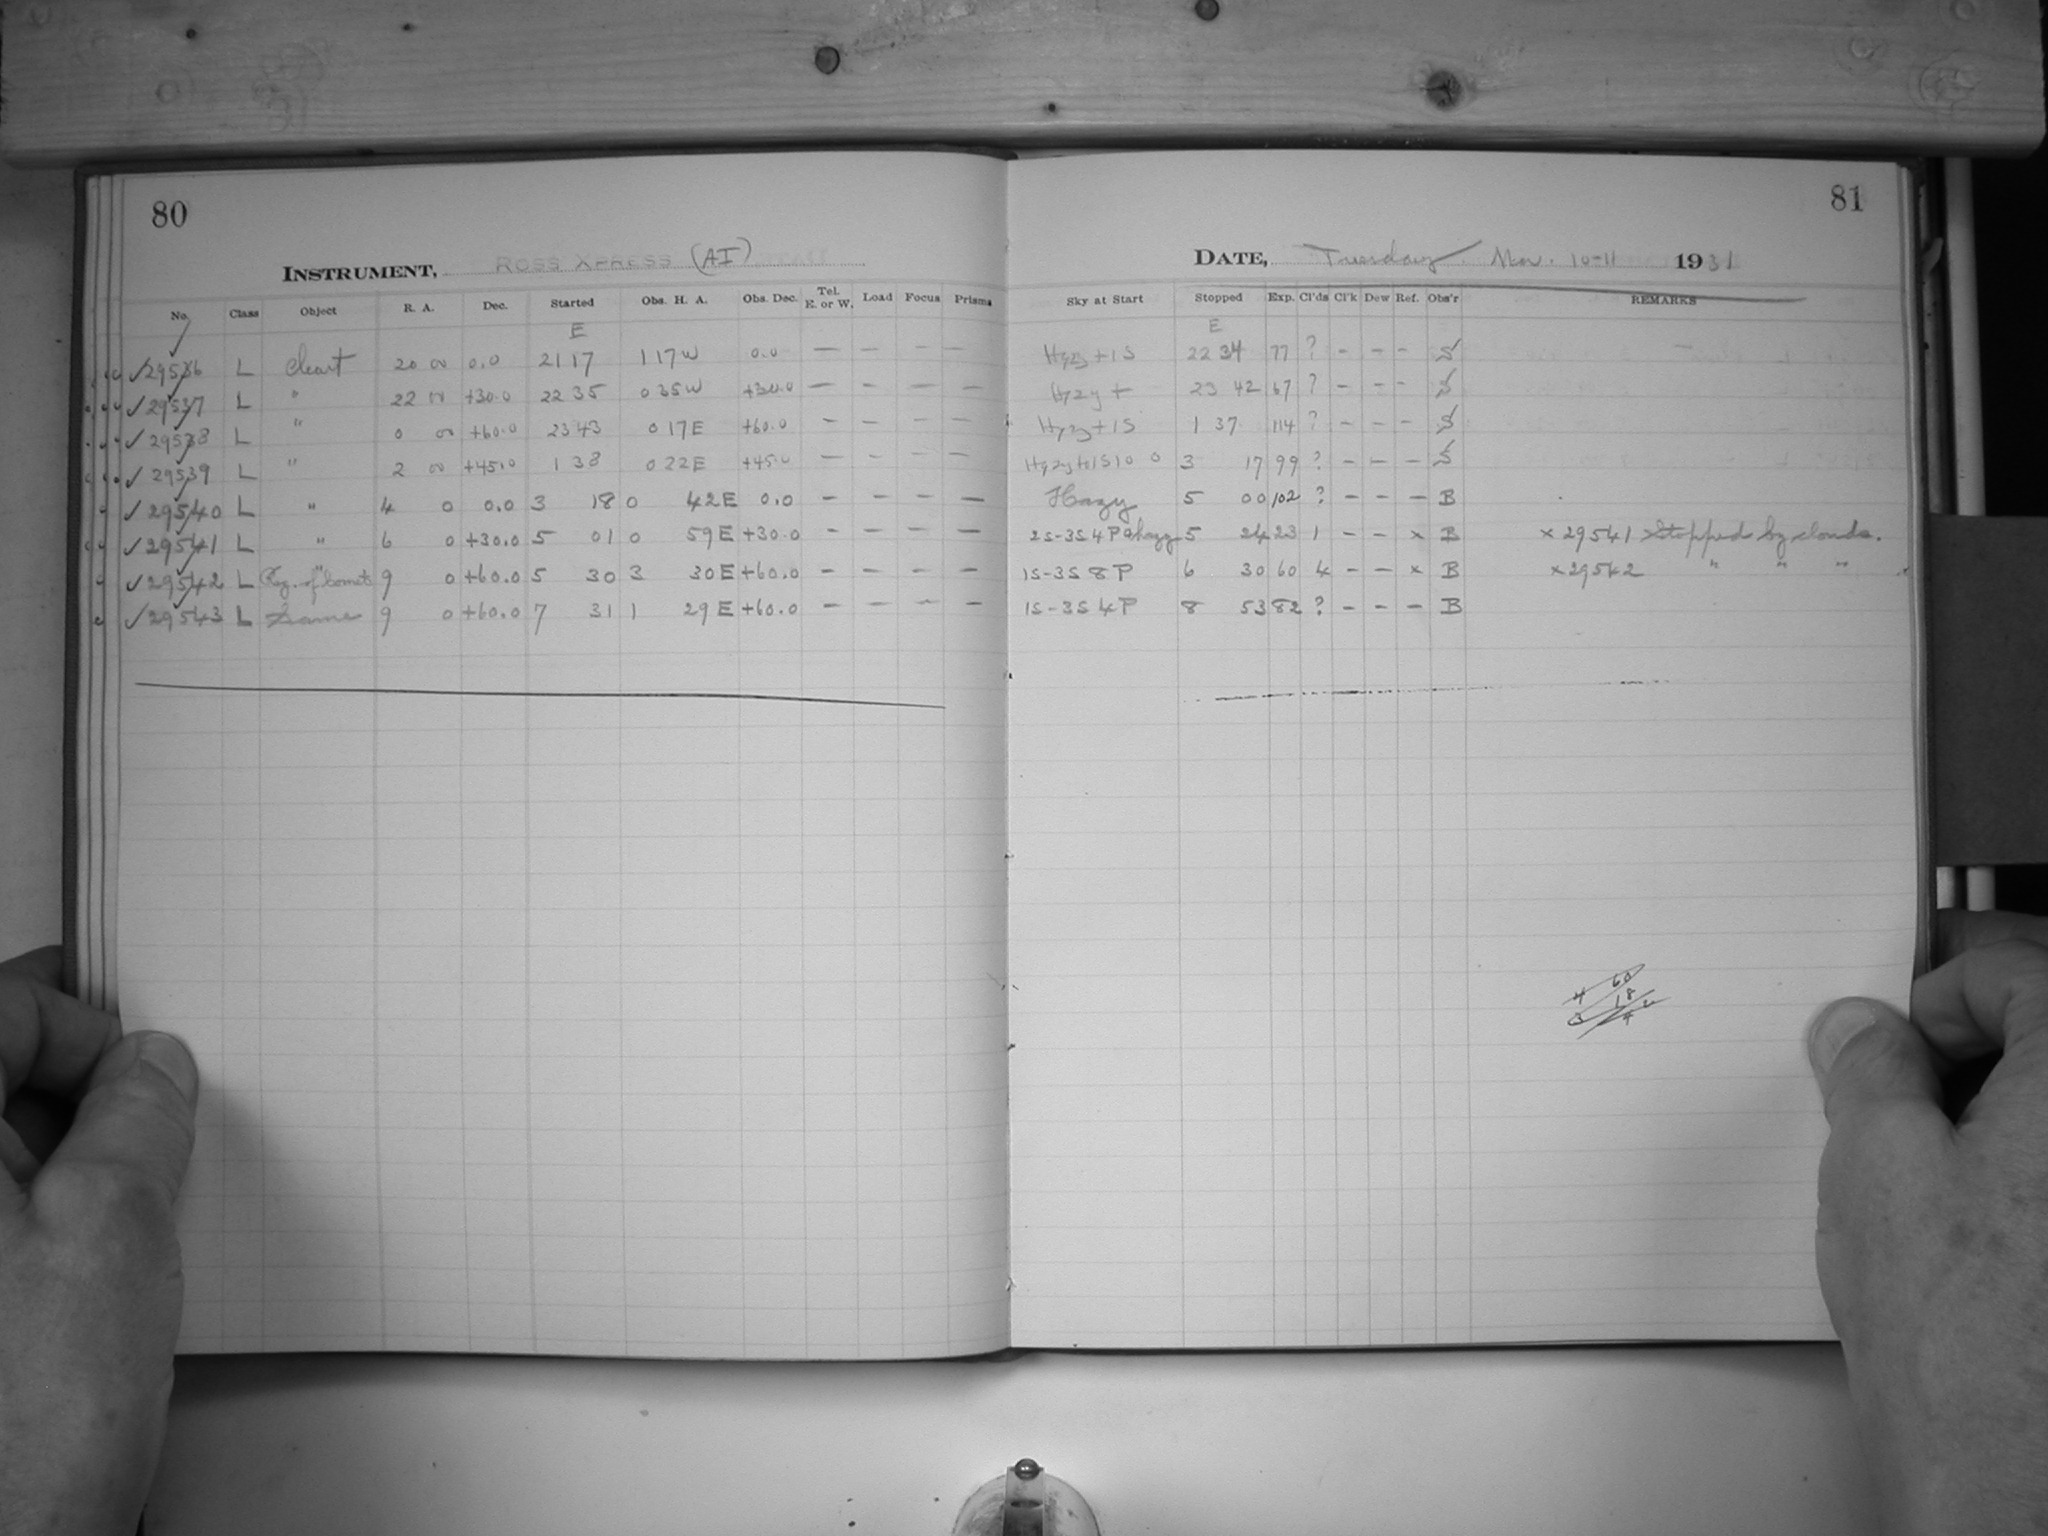 80
INSTRUMENT, ROSS XPRESS (AI)
No. Class Object R. A. Dec. Started Obs. H. A. Obs. Dec. Tel. E. or W. Load Focus Prisms
E
✓29536 L Chart 20 00 0.0 21 17 1 17 W 0.0 — — — —
✓29537 L " 22 00 +30.0 22 35 0 35 W +30.0 — — — —
✓29538 L " 0 00 +60.0 23 43 0 17 E +60.0 — — — —
✓29539 L " 2 00 +45.0 1 38 0 22 E +45.0 — — — —
✓29540 L " 4 0 0.0 3 18 0 42 E 0.0 — — — —
✓29541 L " 6 0 +30.0 5 01 0 59 E +30.0 — — — —
✓29542 L Reg. of Comet 9 0 +60.0 5 30 3 30 E +60.0 — — — —
✓29543 L Same 9 0 +60.0 7 31 1 29 E +60.0 — — — —
81
DATE, Tuesday Mar. 10-11 1931
Sky at Start Stopped Exp. Cl'ds Cl'k Dew Ref. Obs'r REMARKS
E
Hyzy + 1S 22 34 77 ? - - - S
Hyzy + 23 42 67 ? - - - S
Hyzy + 1S 1 37 114 ? - - - S
3 17 99 ? - - - S
Hazy 5 00 102 ? - - - B
2S-3S 4P hazy 5 24 23 1 - - x B x 29541 Stopped by clouds.
1S-3S 8P 6 30 60 4 - - x B x 29542 " " "
1S-3S 4P 8 53 82 ? - - - B
4 60
18
3